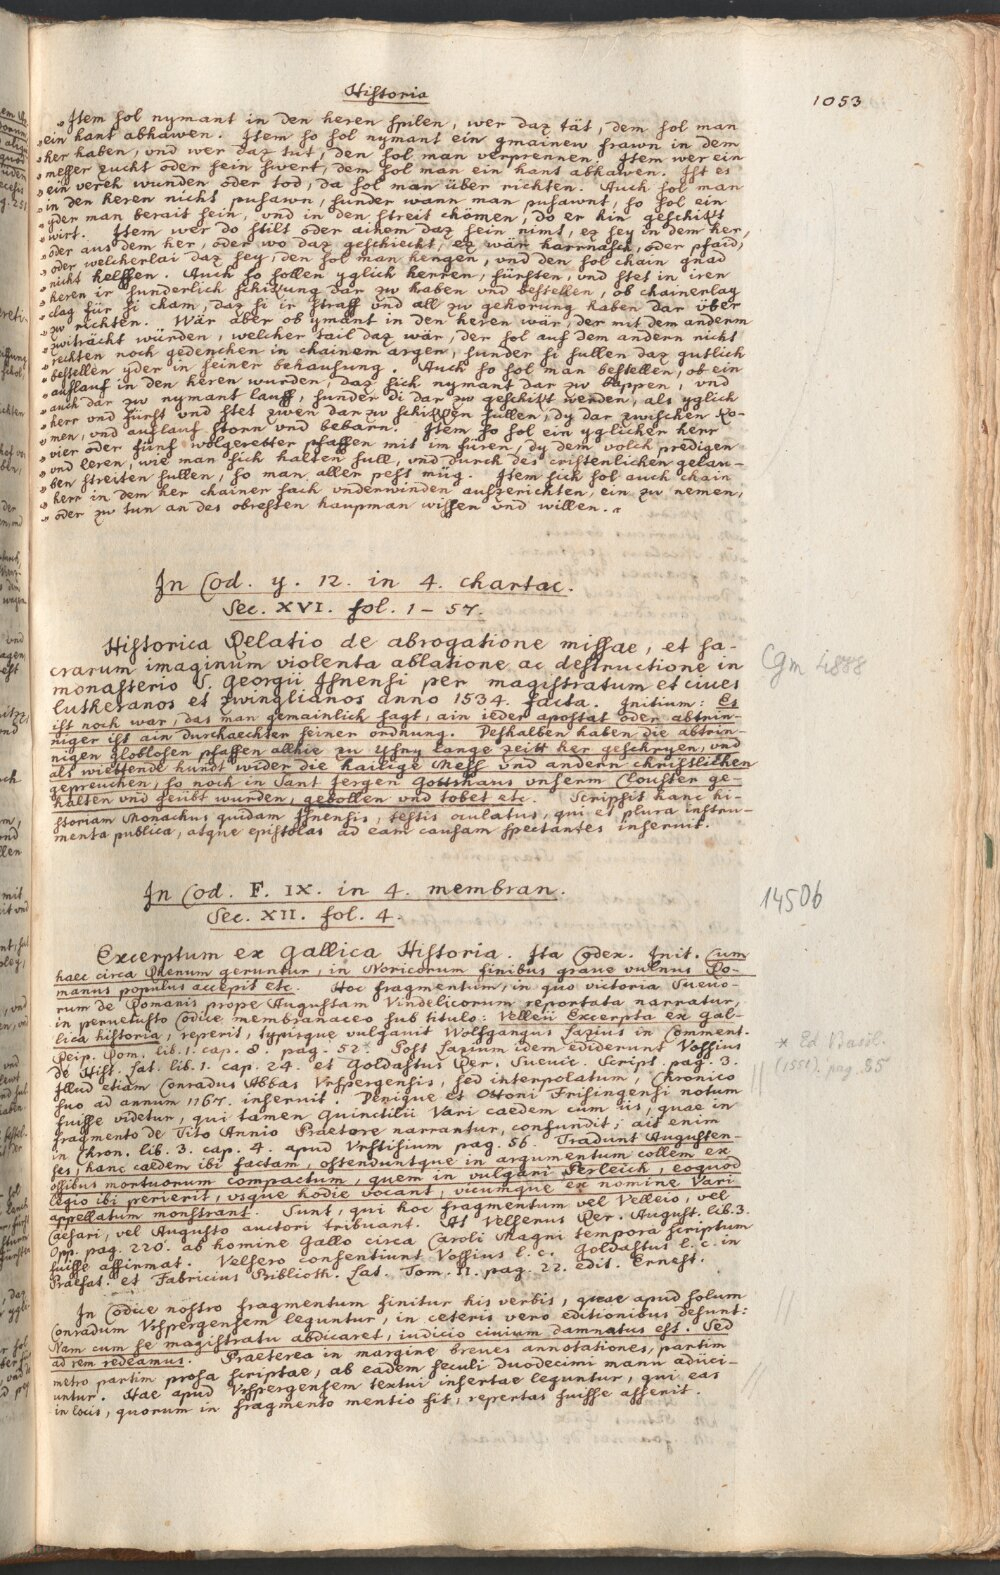 Historia
1053
„Item sol nymant in den heren spilen, wer daz tät, dem sol man
„ein hant abhawen. Item so sol nymant ein gmainew frawn in dem
„her haben, vnd wer daz tut, den sol man verprennen. Item wer ein
„messer zucht oder sein swert, dem sol man ein hant abhawen. Ist es
„ein verch wunden oder tod, da sol man über richten. Auch sol man
„in den heren nicht puhawn, sunder wann man puhawnt, so sol ein
„yder man berait sein, vnd in den streit chömen, do er hin geschikt
„wirt. Item wer do stilt oder ainem daz sein nimt, ez sey in dem her,
„oder aus dem her, oder wo daz geschiecht, ez wär harrnasch, oder pfaid,
„oder welcherlai daz sey, den sol man hengen, vnd den sol chain gnad
„nicht helffen. Auch so sollen yglich herren, fürsten, vnd stet in iren
„heren ir sunderlich schikung dar zw haben vnd bestellen, ob chainerlay
„clag für si cham, daz si ir straff vnd all zw gehorung haben dar über
„zw richten. Wär aber ob ymant in den heren wär, der mit dem anderm
„zwiträcht würden, welcher tail daz wär, der sol auf dem andern nicht
„rechten noch gedenchen in chainem argen, sunder si sullen daz gutlich
„bestellen yder in seiner behausung. Auch so sol man bestellen, ob ein
„auflauf in den heren wurden, daz sich nymant dar zw wappen, vnd
„auch dar zw nymant lauff, sunder di dar zw geschikt werden, als yglich
„herr vnd fürst vnd stet zwen dar zw schikken sullen, dy dar zwischen ko-
„men, vnd auflauf storn vnd bebarn. Item so sol ein yglicher herr
„vier oder fünf wolgerebter pfaffen mit im füren, dy dem volch predigen
„vnd leren, wie man sich halten sull, vnd durch des cristenlichen gelau-
„ben streiten sullen, so man aller pest müg. Item sich sol auch chain
„herr in dem her chainer sach vnderwinden aufzerichten, ein zw nemen,
„oder zw tun an des obresten haupman wissen vnd willen.„
In Cod. y. 12. in 4. chartac.
Sec. XVI. fol. 1-57.
Historica Relatio de abrogatione missae, et sa-
crarum imaginum violenta ablatione ac destructione in
monasterio S. Georgii Isnensi per magistratum et ciues
Lutheranos et Zwinglianos anno 1534. facta. Initium: Es
ist noch war, das man gemainlich sagt, ain ieder apostat oder abtrin-
niger ist ain durchaechter seiner ordnung. Deshalben haben die abtrin-
nigen globlosen pfaffen allhie zu Ysny lange zeitt her geschryen, vnd
als wiettende hundt wider die hailige Mess vnd andern christlichen
gepreuchen, so noch in Sant Jergen Gottshaus vnserm Clouster ge-
halten vnd geübt wurden, gebollen vnd tobet etc. Scripsit hanc hi-
storiam Monachus quidam Isnensis, testis oculatus, qui et plura instru-
menta publica, atque epistolas ad eam causam spectantes inseruit.
Cgm 4888
In Cod. F. IX. in 4. membran.
Sec. XII. fol. 4.
14506
Excerptum ex Gallica Historia. Ita Codex. Init. Cum
haec circa Rhenum geruntur, in Noricorum finibus graue vulnus Ro-
manus populus accepit etc. Hoc fragmentum, in quo victoria Sueuo-
rum de Romanis prope Augustam Vindelicorum reportata narratur,
in peruetusto Codice membranaceo sub titulo: Velleii Excerpta ex Gal-
lica historia, reperit, typisque vulgauit Wolfgangus Lazius in Comment.
Reip. Rom. lib. 1. cap. 8. pag. 52.* Post Lazium idem ediderunt Vossius
de Hist. Lat. lib. 1. cap. 24. et Goldastus Rer. Sueuic. Script. pag. 3.
Illud etiam Conradus Abbas Vrspergensis, sed interpolatum, Chronico
suo ad annum 1167. inseruit. Denique et Ottoni Frisingensi notum
fuisse videtur, qui tamen Quinctilii Vari caedem cum iis, quae in
fragmento de Tito Annio Praetore narrantur, confundit; ait enim
in Chron. lib. 3. cap. 4. apud Vrstisium pag. 56. Tradunt Augusten-
ses, hanc caedem ibi factam, ostenduntque in argumentum collem ex
ossibus mortuorum compactum, quem in vulgari Perleich, eoquod
legio ibi perierit, vsque hodie vocant, vicumque ex nomine Vari
appellatum monstrant. Sunt, qui hoc fragmentum vel Velleio, vel
Caesari, vel Augusto auctori tribuant. At Velserus Rer. August. lib. 3.
Opp. pag. 220. ab homine Gallo circa Caroli Magni tempora scriptum
fuisse affirmat. Velsero consentiunt Vossius l. c. Goldastus l. c. in
Praefat. et Fabricius Biblioth. Lat. Tom. II. pag. 22. edit. Ernest.
* Ed Basil.
(1551). pag. 85
In Codice nostro fragmentum finitur his verbis, quae apud solum
Conradum Vrspergensem leguntur, in ceteris vero editionibus desunt:
Nam cum se magistratu abdicaret, iudicio ciuium damnatus est. Sed
ad rem redeamus. Praeterea in margine breues annotationes, partim
metro partim prosa scriptae, ab eadem seculi duodecimi manu adiici-
untur. Hae apud Vrspergensem textui insertae leguntur, qui eas
in locis, quorum in fragmento mentio fit, repertas fuisse asserit.